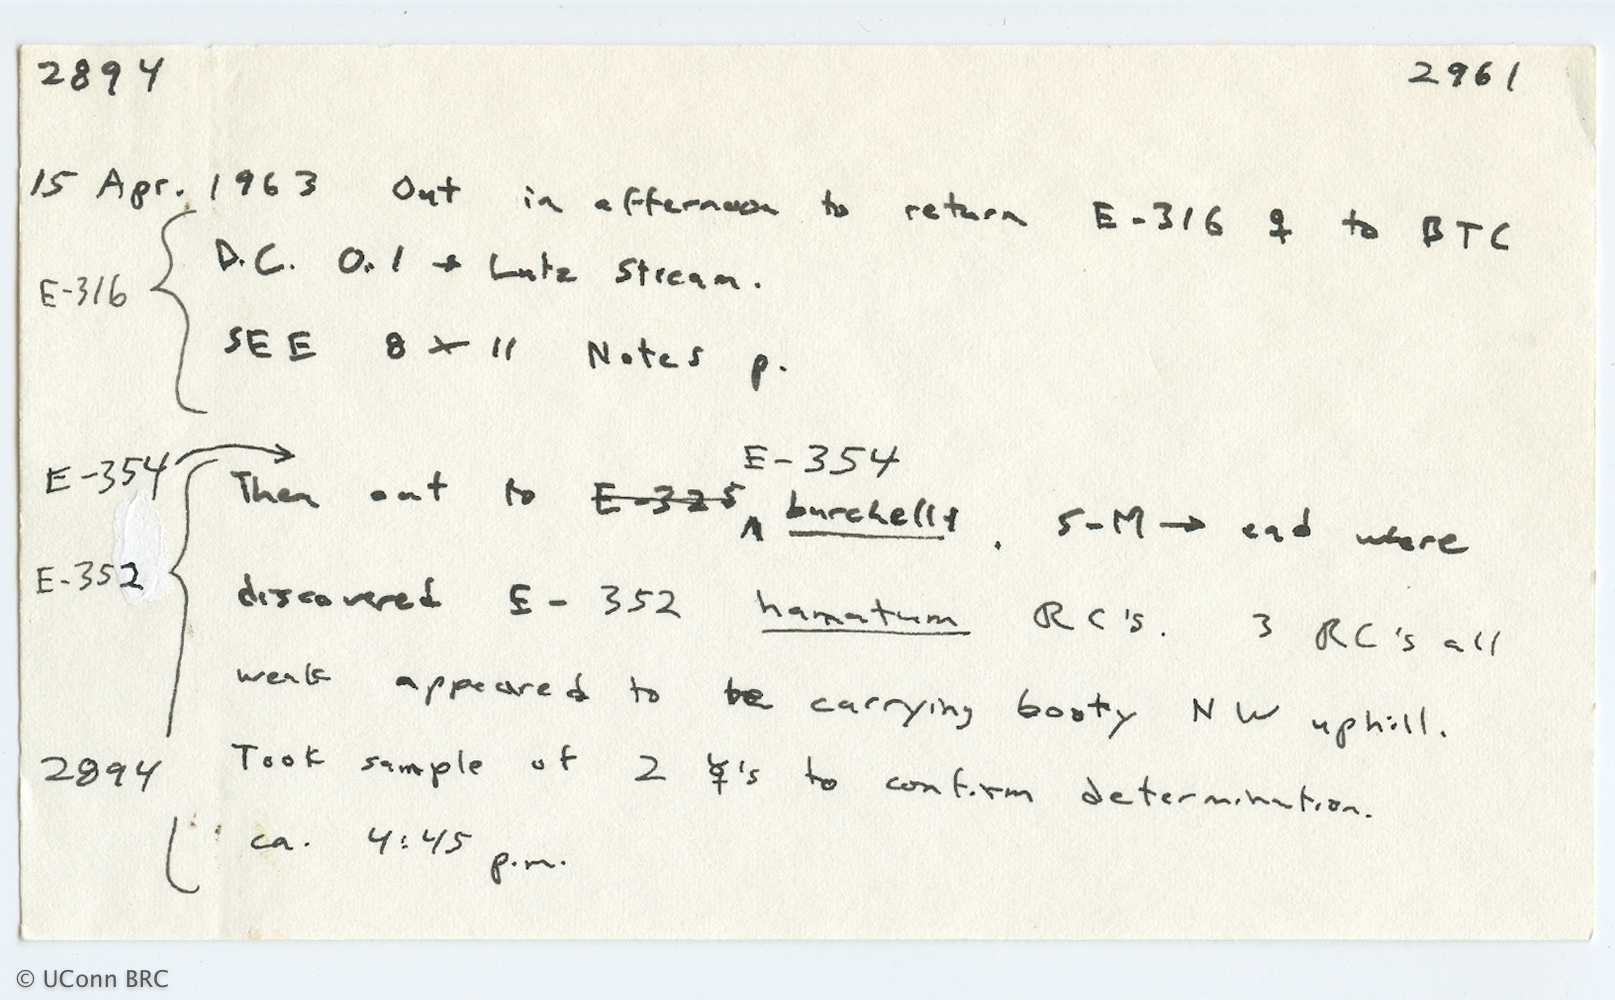 2894 2961
15 Apr. 1963 Out in afternoon to return E-316 ♀ to BTC
E-316 D.C. 0.1 → Lutz Stream.
SEE 8 x 11 Notes p.
E-354 E-354
Then out to E-325 ^ burchelli. S-M → end where
E-352 discovered E-352 hamatum RC's. 3 RC's all
weak appeared to be carrying booty NW uphill.
2894 Took sample of 2 ☿'s to confirm determination.
ca. 4:45 p.m.
© UConn BRC